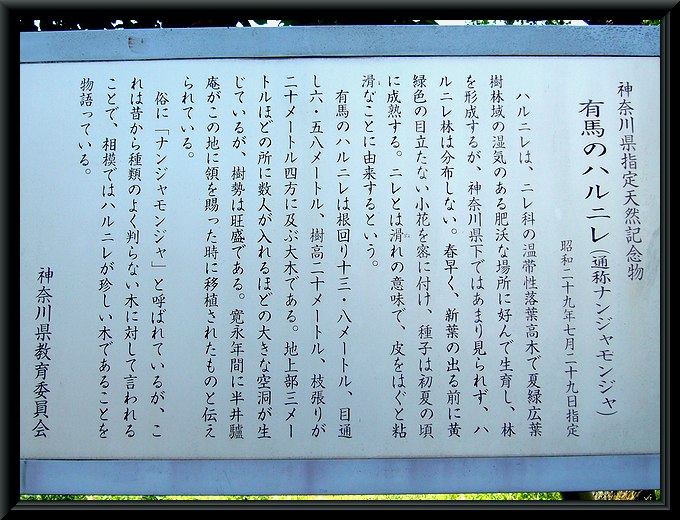 神奈川県指定天然記念物
有馬のハルニレ（通称ナンジャモンジャ）
昭和二十九年七月二十九日指定
ハルニレは、ニレ科の温帯性落葉高木で夏緑広葉
樹林域の湿気のある肥沃な場所に好んで生育し、林
を形成するが、神奈川県下ではあまり見られず、ハ
ルニレ林は分布しない。春早く、新葉の出る前に黄
緑色の目立たない小花を密に付け、種子は初夏の頃
に成熟する。ニレとは滑れの意味で、皮をはぐと粘
滑なことに由来するという。
有馬のハルニレは根回り十三・八メートル、目通
し六・五八メートル、樹高二十メートル、枝張りが
二十メートル四方に及ぶ大木である。地上部三メー
トルほどの所に数人が入れるほどの大きな空洞が生
じているが、樹勢は旺盛である。寛永年間に半井驢
庵がこの地に領を賜った時に移植されたものと伝え
られている。
俗に「ナンジャモンジャ」と呼ばれているが、こ
れは昔から種類のよく判らない木に対して言われる
ことで、相模ではハルニレが珍しい木であることを
物語っている。
神奈川県教育委員会